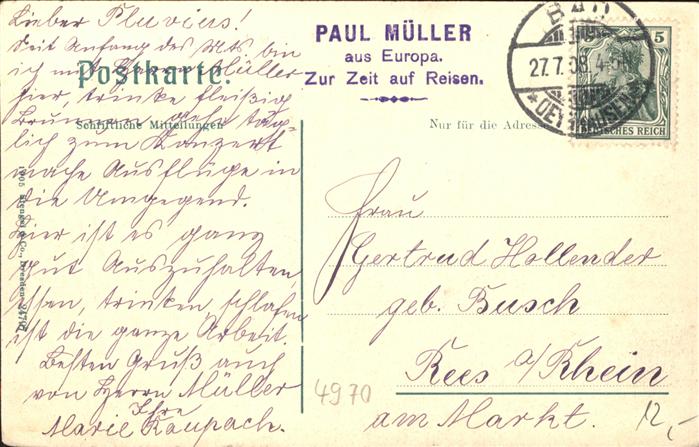 Lieber Pluvius!
Seit Anfang des Mts. bin
ich mit Herrn Müller
hier, trinke fleißig
Brunnen, gehe täg-
lich zum Konzert
mache Ausflüge in
die Umgegend.
Hier ist es ganz
gut Auszuhalten,
Essen, trinken, schlafen
ist die ganze Arbeit.
Besten Gruß auch
von Herrn Müller
Ihre
Marie Raupach.
Postkarte.
Schriftliche Mitteilungen
PAUL MÜLLER
aus Europa.
Zur Zeit auf Reisen.
BAD
27.7.08. 4-5N
* OEYNHAUSEN *
5
DEUTSCHES REICH
Nur für die Adresse
Frau
Gertrud Hollender
geb. Busch
Rees a/Rhein
am Markt.
4970
12,-
1905 Stengel & Co., Dresden